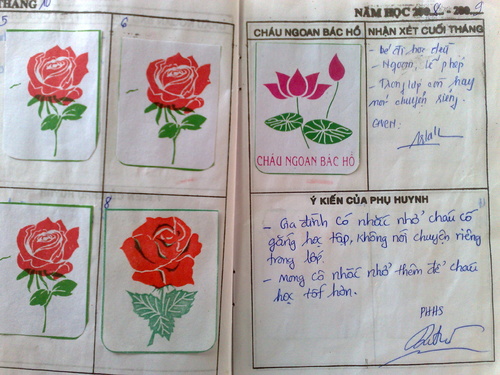 THÁNG 10
5
6
8
NĂM HỌC 2008 - 2009
CHÁU NGOAN BÁC HỒ
NHẬN XÉT CUỐI THÁNG
CHÁU NGOAN BÁC HỒ
- Bé đi học đều
- Ngoan, lễ phép
- Trong lớp còn hay
nói chuyện riêng.
GVCN
Ý KIẾN CỦA PHỤ HUYNH
- Gia đình có nhắc nhở cháu cố
gắng học tập, không nói chuyện riêng
trong lớp.
- Mong cô nhắc nhở thêm để cháu
học tốt hơn.
PHHS